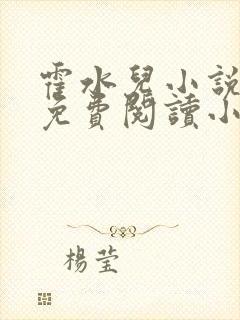 霍水兒小說
免費閱讀小
楊莹